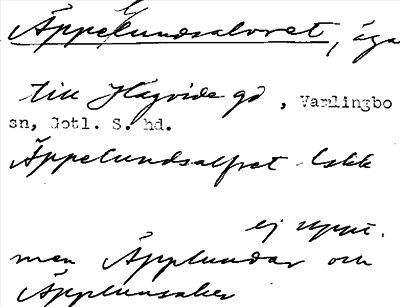 Äppelundsalvret, äga
till Hägvide gd, Vamlingbo
sn, Gotl. S. hd.
Äppelundsalfret
ej uppt.
men Äpplundar och
Äpplunsaker